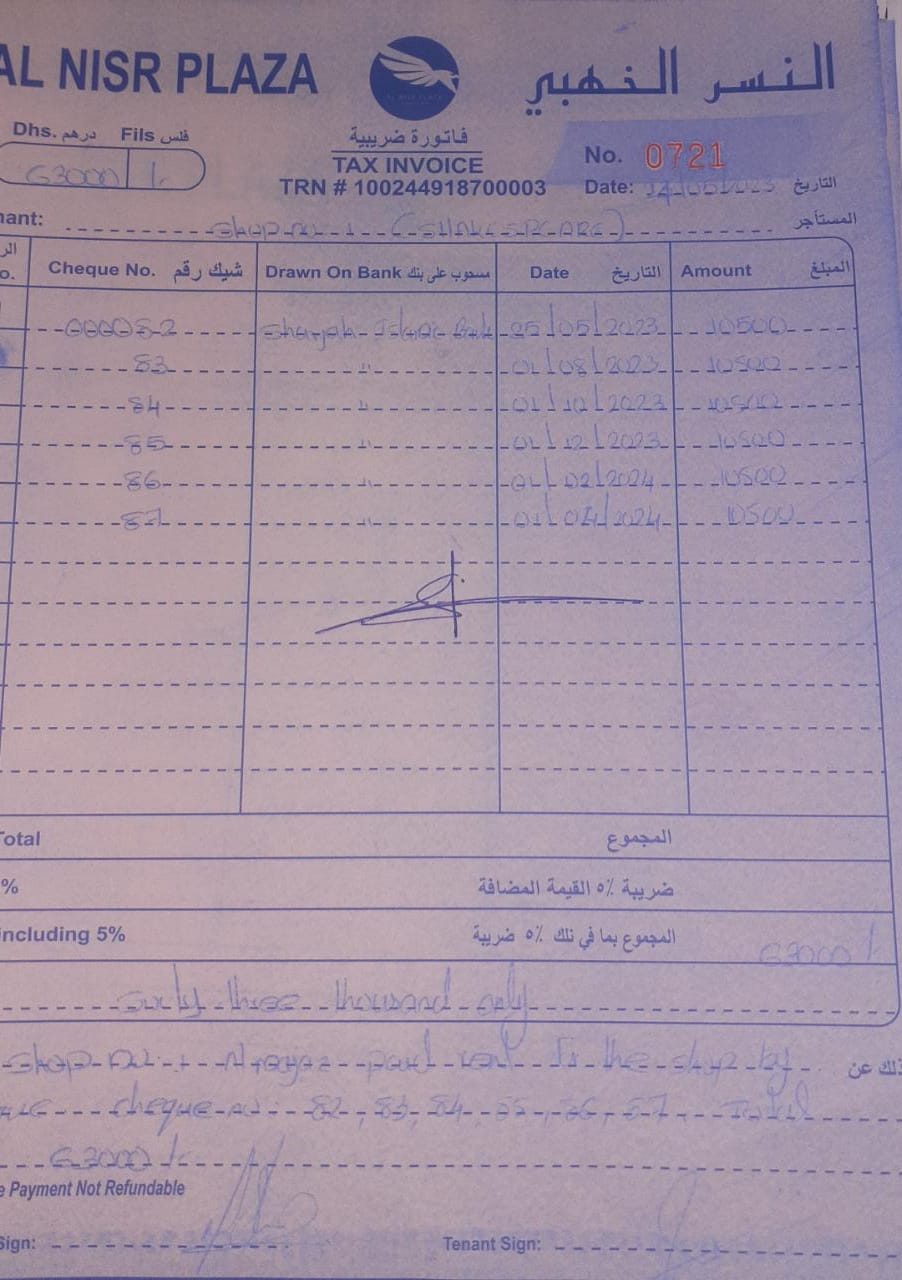 AL NISR PLAZA
النسر الذهبي
Dhs. درهم Fils فلس
63000 /.
فاتورة ضريبية
TAX INVOICE
TRN # 100244918700003
No. 0721
Date: 14/05/2023 التاريخ
nant: Shop no 1 (SHAKESPEARE) المستأجر
الر
o. Cheque No. شيك رقم Drawn On Bank مسحوب على بنك Date التاريخ Amount المبلغ
000082 Sharjah Islamic Bank 25/05/2023 10500
83 " 01/08/2023 10500
84 " 01/10/2023 10500
85 " 01/12/2023 10500
86 " 01/02/2024 10500
87 " 01/04/2024 10500
Total المجموع
% ضريبة ٥٪ القيمة المضافة
including 5% المجموع بما في ذلك ٥٪ ضريبة 63000 /.
Sixty three thousand only
Shop no: 1 paid rent for the shop by ذلك عن
cheque no: 82, 83, 84, 85, 86, 87 Total
63000 /.
e Payment Not Refundable
Sign: Tenant Sign: